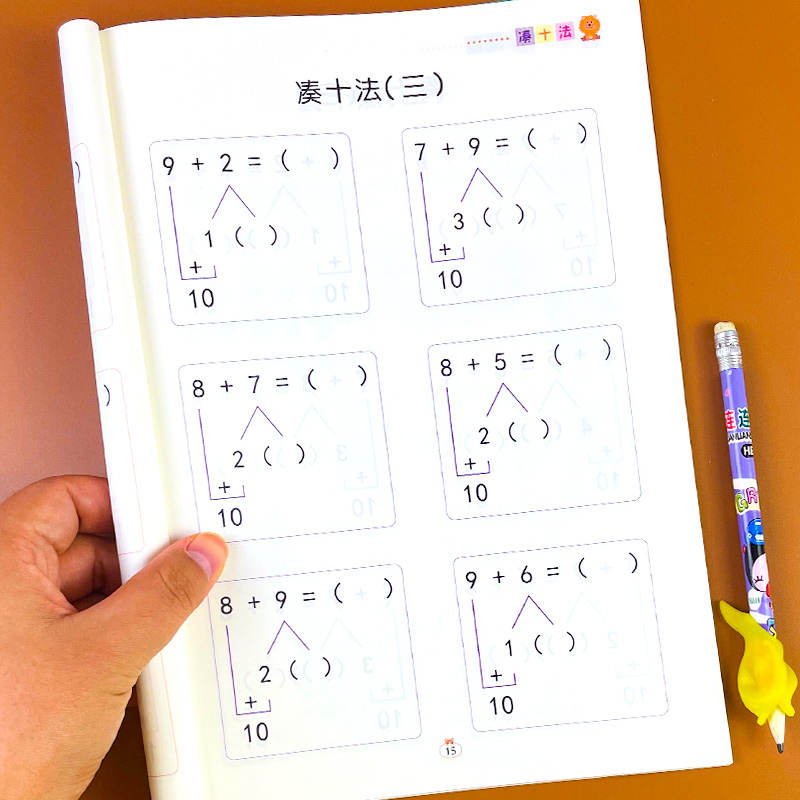 凑十法
凑十法(三)
9 + 2 = ( )
1 ( )
+
10
7 + 9 = ( )
3 ( )
+
10
8 + 7 = ( )
2 ( )
+
10
8 + 5 = ( )
2 ( )
+
10
8 + 9 = ( )
2 ( )
+
10
9 + 6 = ( )
1 ( )
+
10
15